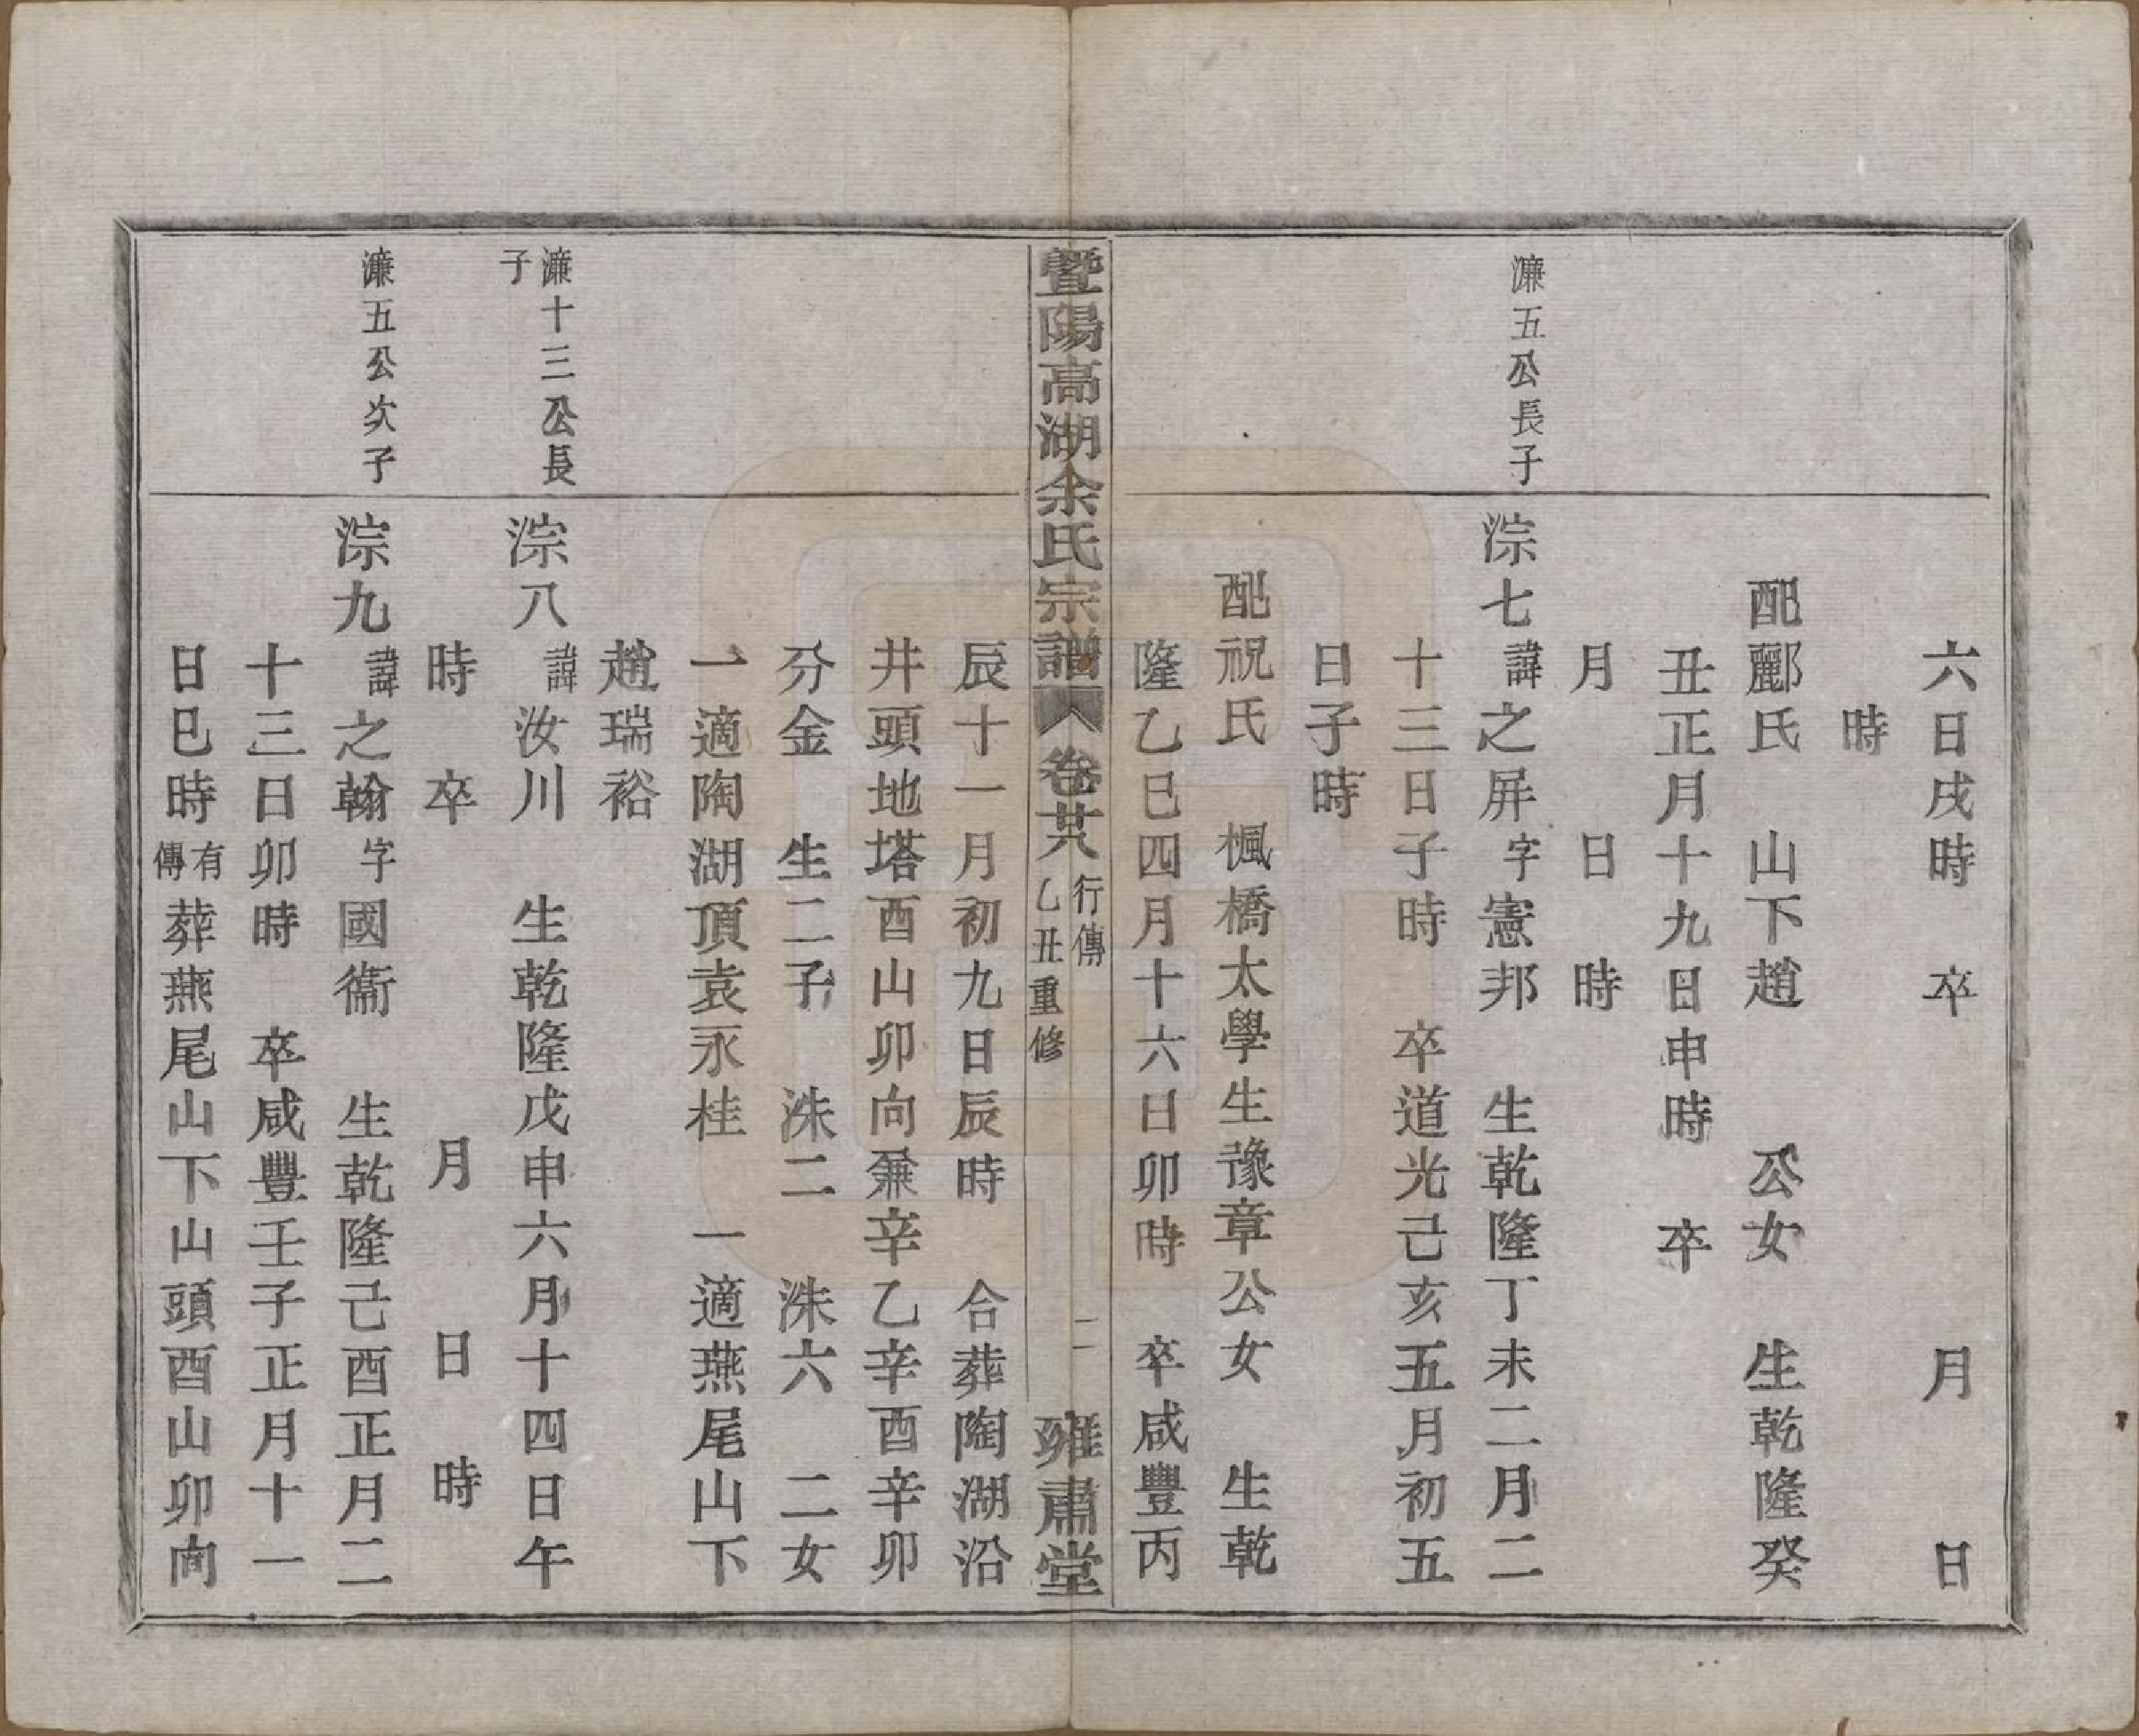 六日戌時　卒　月　日
時
配酈氏　山下趙　公女　生乾隆癸
丑正月十九日申時　卒
月　日　時
濂五公長子
淙七諱之屏字憲邦　生乾隆丁未二月二
十三日子時　卒道光己亥五月初五
日子時
配祝氏　楓橋太學生豫章公女　生乾
隆乙巳四月十六日卯時　卒咸豐丙
暨陽高湖余氏宗譜　卷廿八　行傳　乙丑重修　二　雍肅堂
辰十一月初九日辰時　合葬陶湖沿
井頭地塔酉山卯向兼辛乙辛酉辛卯
分金　生二子　洙二　洙六　二女
一適陶湖頂袁永桂　一適燕尾山下
趙瑞裕
濂十三公長子
淙八諱汝川　生乾隆戊申六月十四日午
時　卒　月　日　時
濂五公次子
淙九諱之翰字國衞　生乾隆己酉正月二
十三日卯時　卒咸豐壬子正月十一
日巳時有傳葬燕尾山下山頭酉山卯向